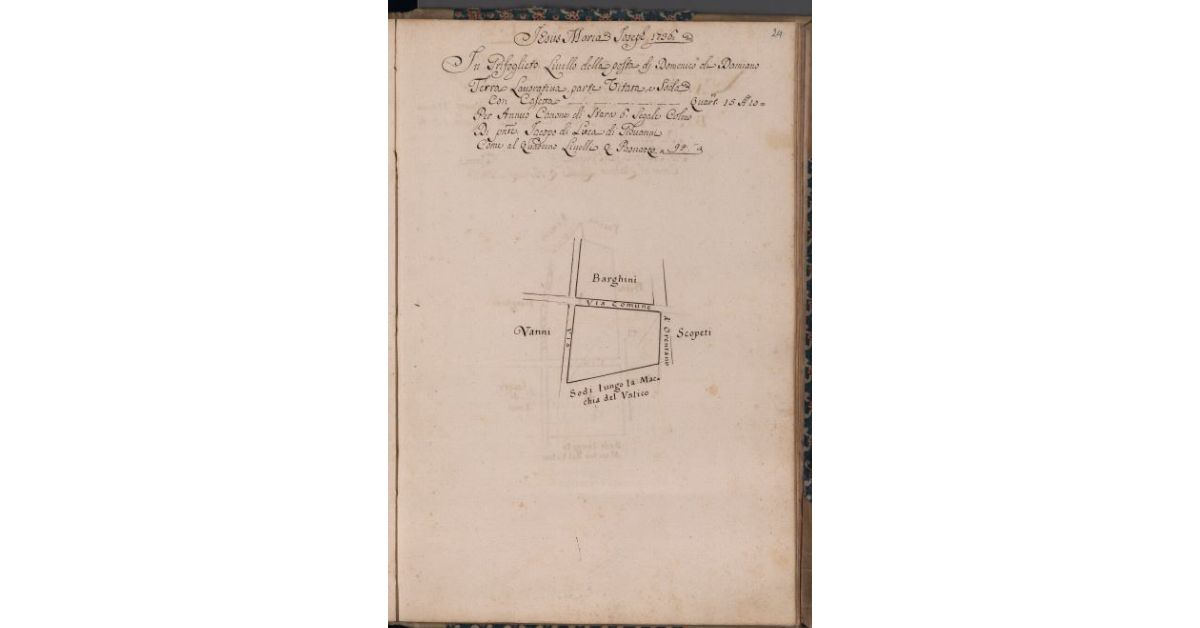 24
Jesus Maria Joseph 1736
In Trifoglieto, Livello della posta di Domenico di Damiano
Terra Lavorativa, parte Vitata, e Soda
Con Casetta Quart. 15
Per Annuo Canone di Stara 6 Segale Colmo
Di parte Jacopo di Luca di Giovanni
Come al Quaderno Livelli 94
Barghini
Via Comune
Vanni
Via
d'Orentano
Scopeti
Sodi lungo la Mac=
chia del Valico